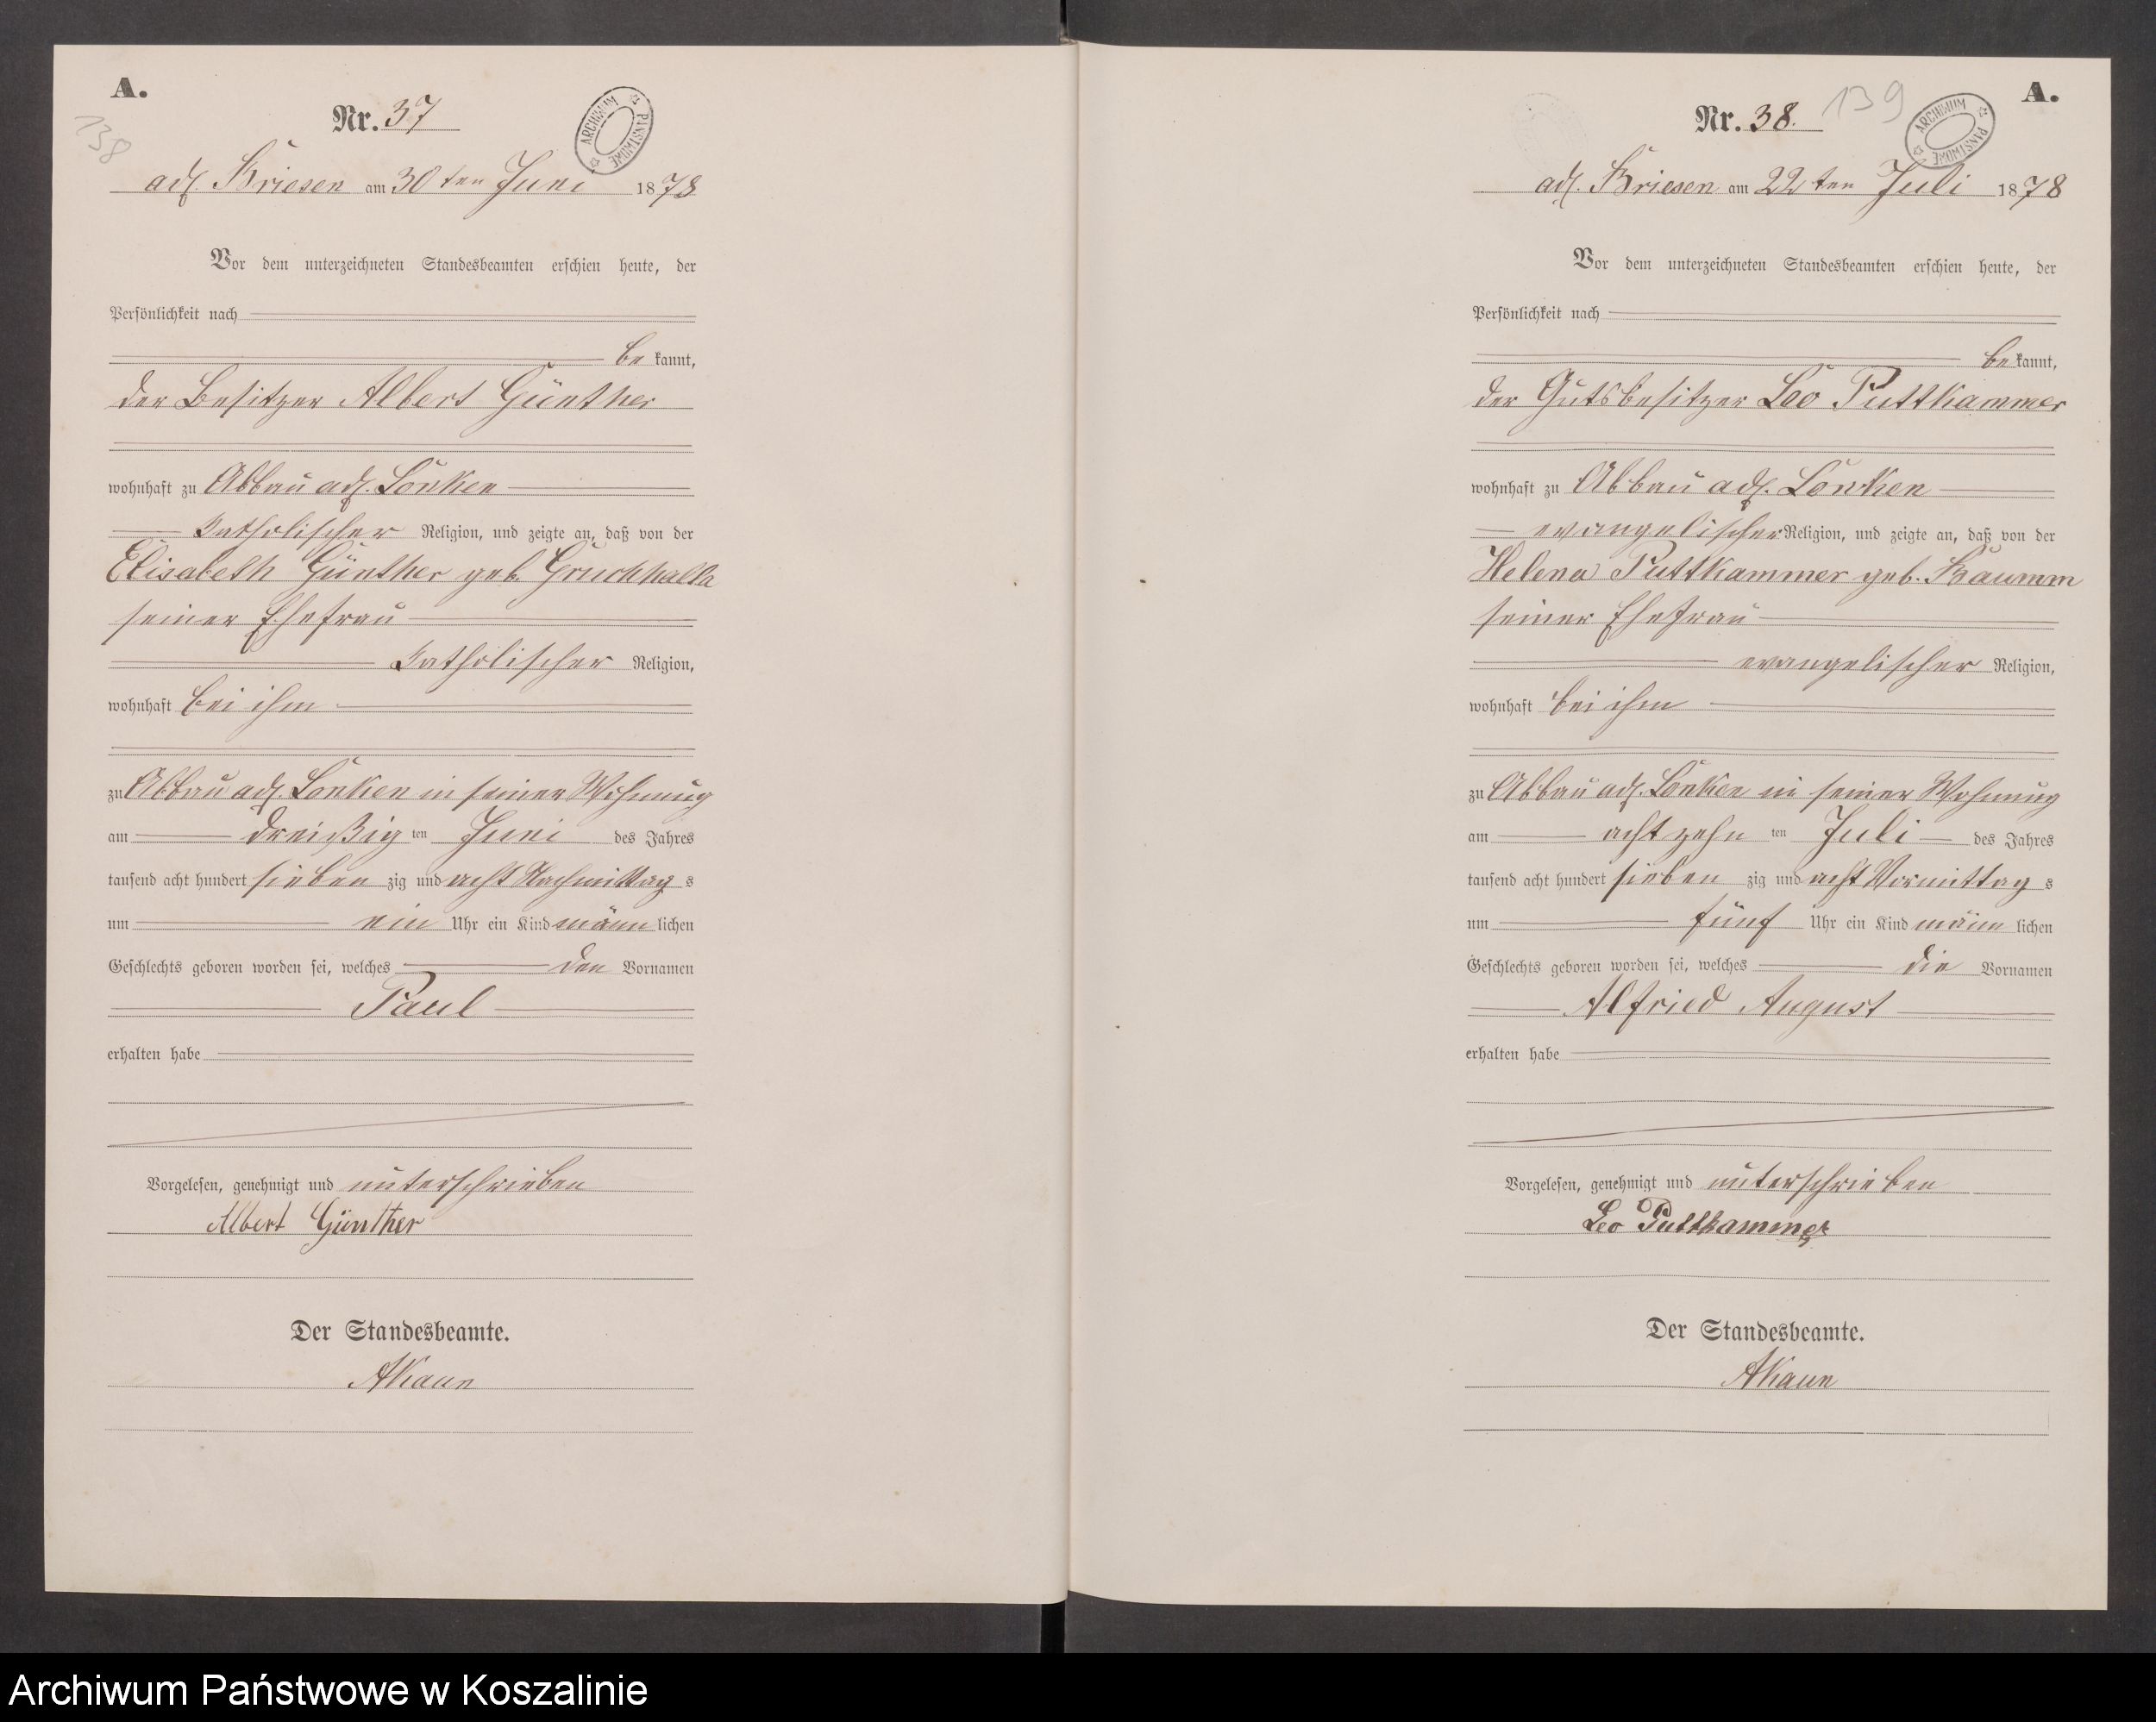 A.
138
Nr. 37
ARCHIWUM PAŃSTWOWE
adl. Briesen am 30ten Juni 1878
Vor dem unterzeichneten Standesbeamten erschien heute, der
Persönlichkeit nach
be kannt,
der Besitzer Albert Günther
wohnhaft zu Abbau adl. Lonken
katholischer Religion, und zeigte an, daß von der
Elisabeth Günther geb. Gruchhalla
seiner Ehefrau
katholischer Religion,
wohnhaft bei ihm
zu Abbau adl. Lonken in seiner Wohnung
am dreißig ten Juni des Jahres
tausend acht hundert sieben zig und acht Nachmittag s
um ein Uhr ein Kind männ lichen
Geschlechts geboren worden sei, welches den Vornamen
Paul
erhalten habe
Vorgelesen, genehmigt und unterschrieben
Albert Günther
Der Standesbeamte.
AKaun
A.
139
Nr. 38.
ARCHIWUM PAŃSTWOWE
adl. Briesen am 22ten Juli 1878
Vor dem unterzeichneten Standesbeamten erschien heute, der
Persönlichkeit nach
be kannt,
der Gutsbesitzer Leo Puttkammer
wohnhaft zu Abbau adl. Lonken
evangelischer Religion, und zeigte an, daß von der
Helena Puttkammer geb. Baumm
seiner Ehefrau
evangelischer Religion,
wohnhaft bei ihm
zu Abbau adl. Lonken in seiner Wohnung
am achtzehn ten Juli des Jahres
tausend acht hundert sieben zig und acht Vormittag s
um fünf Uhr ein Kind männ lichen
Geschlechts geboren worden sei, welches die Vornamen
Alfried August
erhalten habe
Vorgelesen, genehmigt und unterschrieben
Leo Puttkammer
Der Standesbeamte.
AKaun
Archiwum Państwowe w Koszalinie